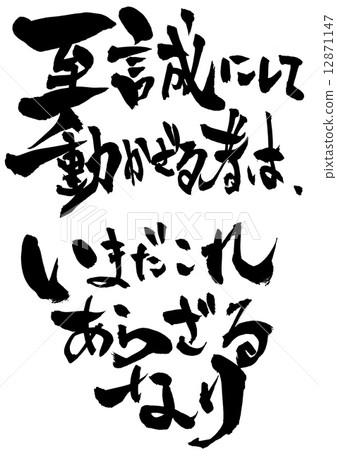 至誠にして
動かざる者は、
いまだこれ
あらざる
なり
PIXTA
12871147